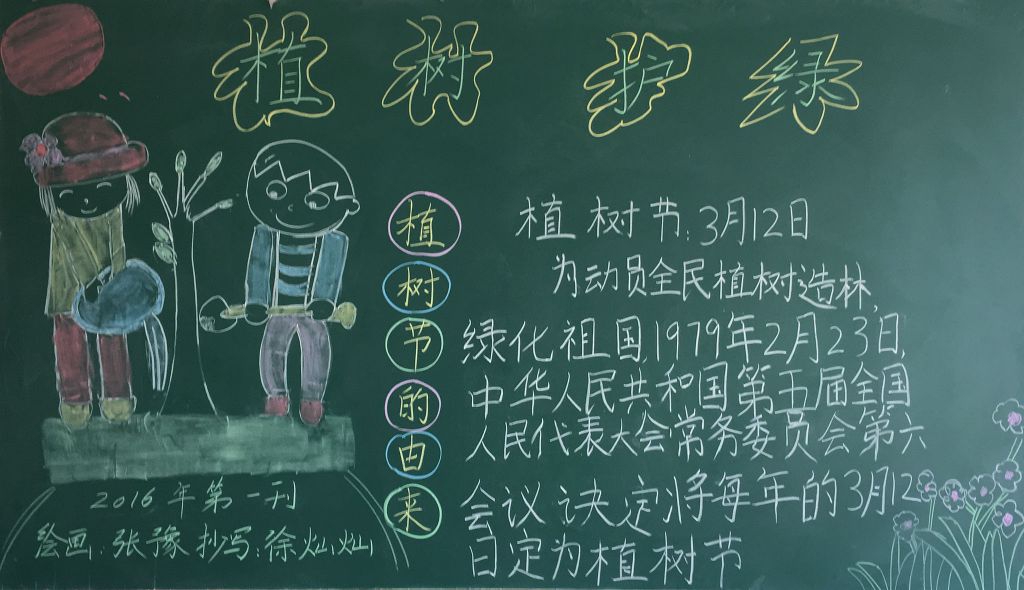 植树护绿
植树节的由来
植树节:3月12日
为动员全民植树造林,
绿化祖国,1979年2月23日,
中华人民共和国第五届全国
人民代表大会常务委员会第六
会议决定将每年的3月12
日定为植树节
2016年第一刊
绘画:张豫 抄写:徐灿灿